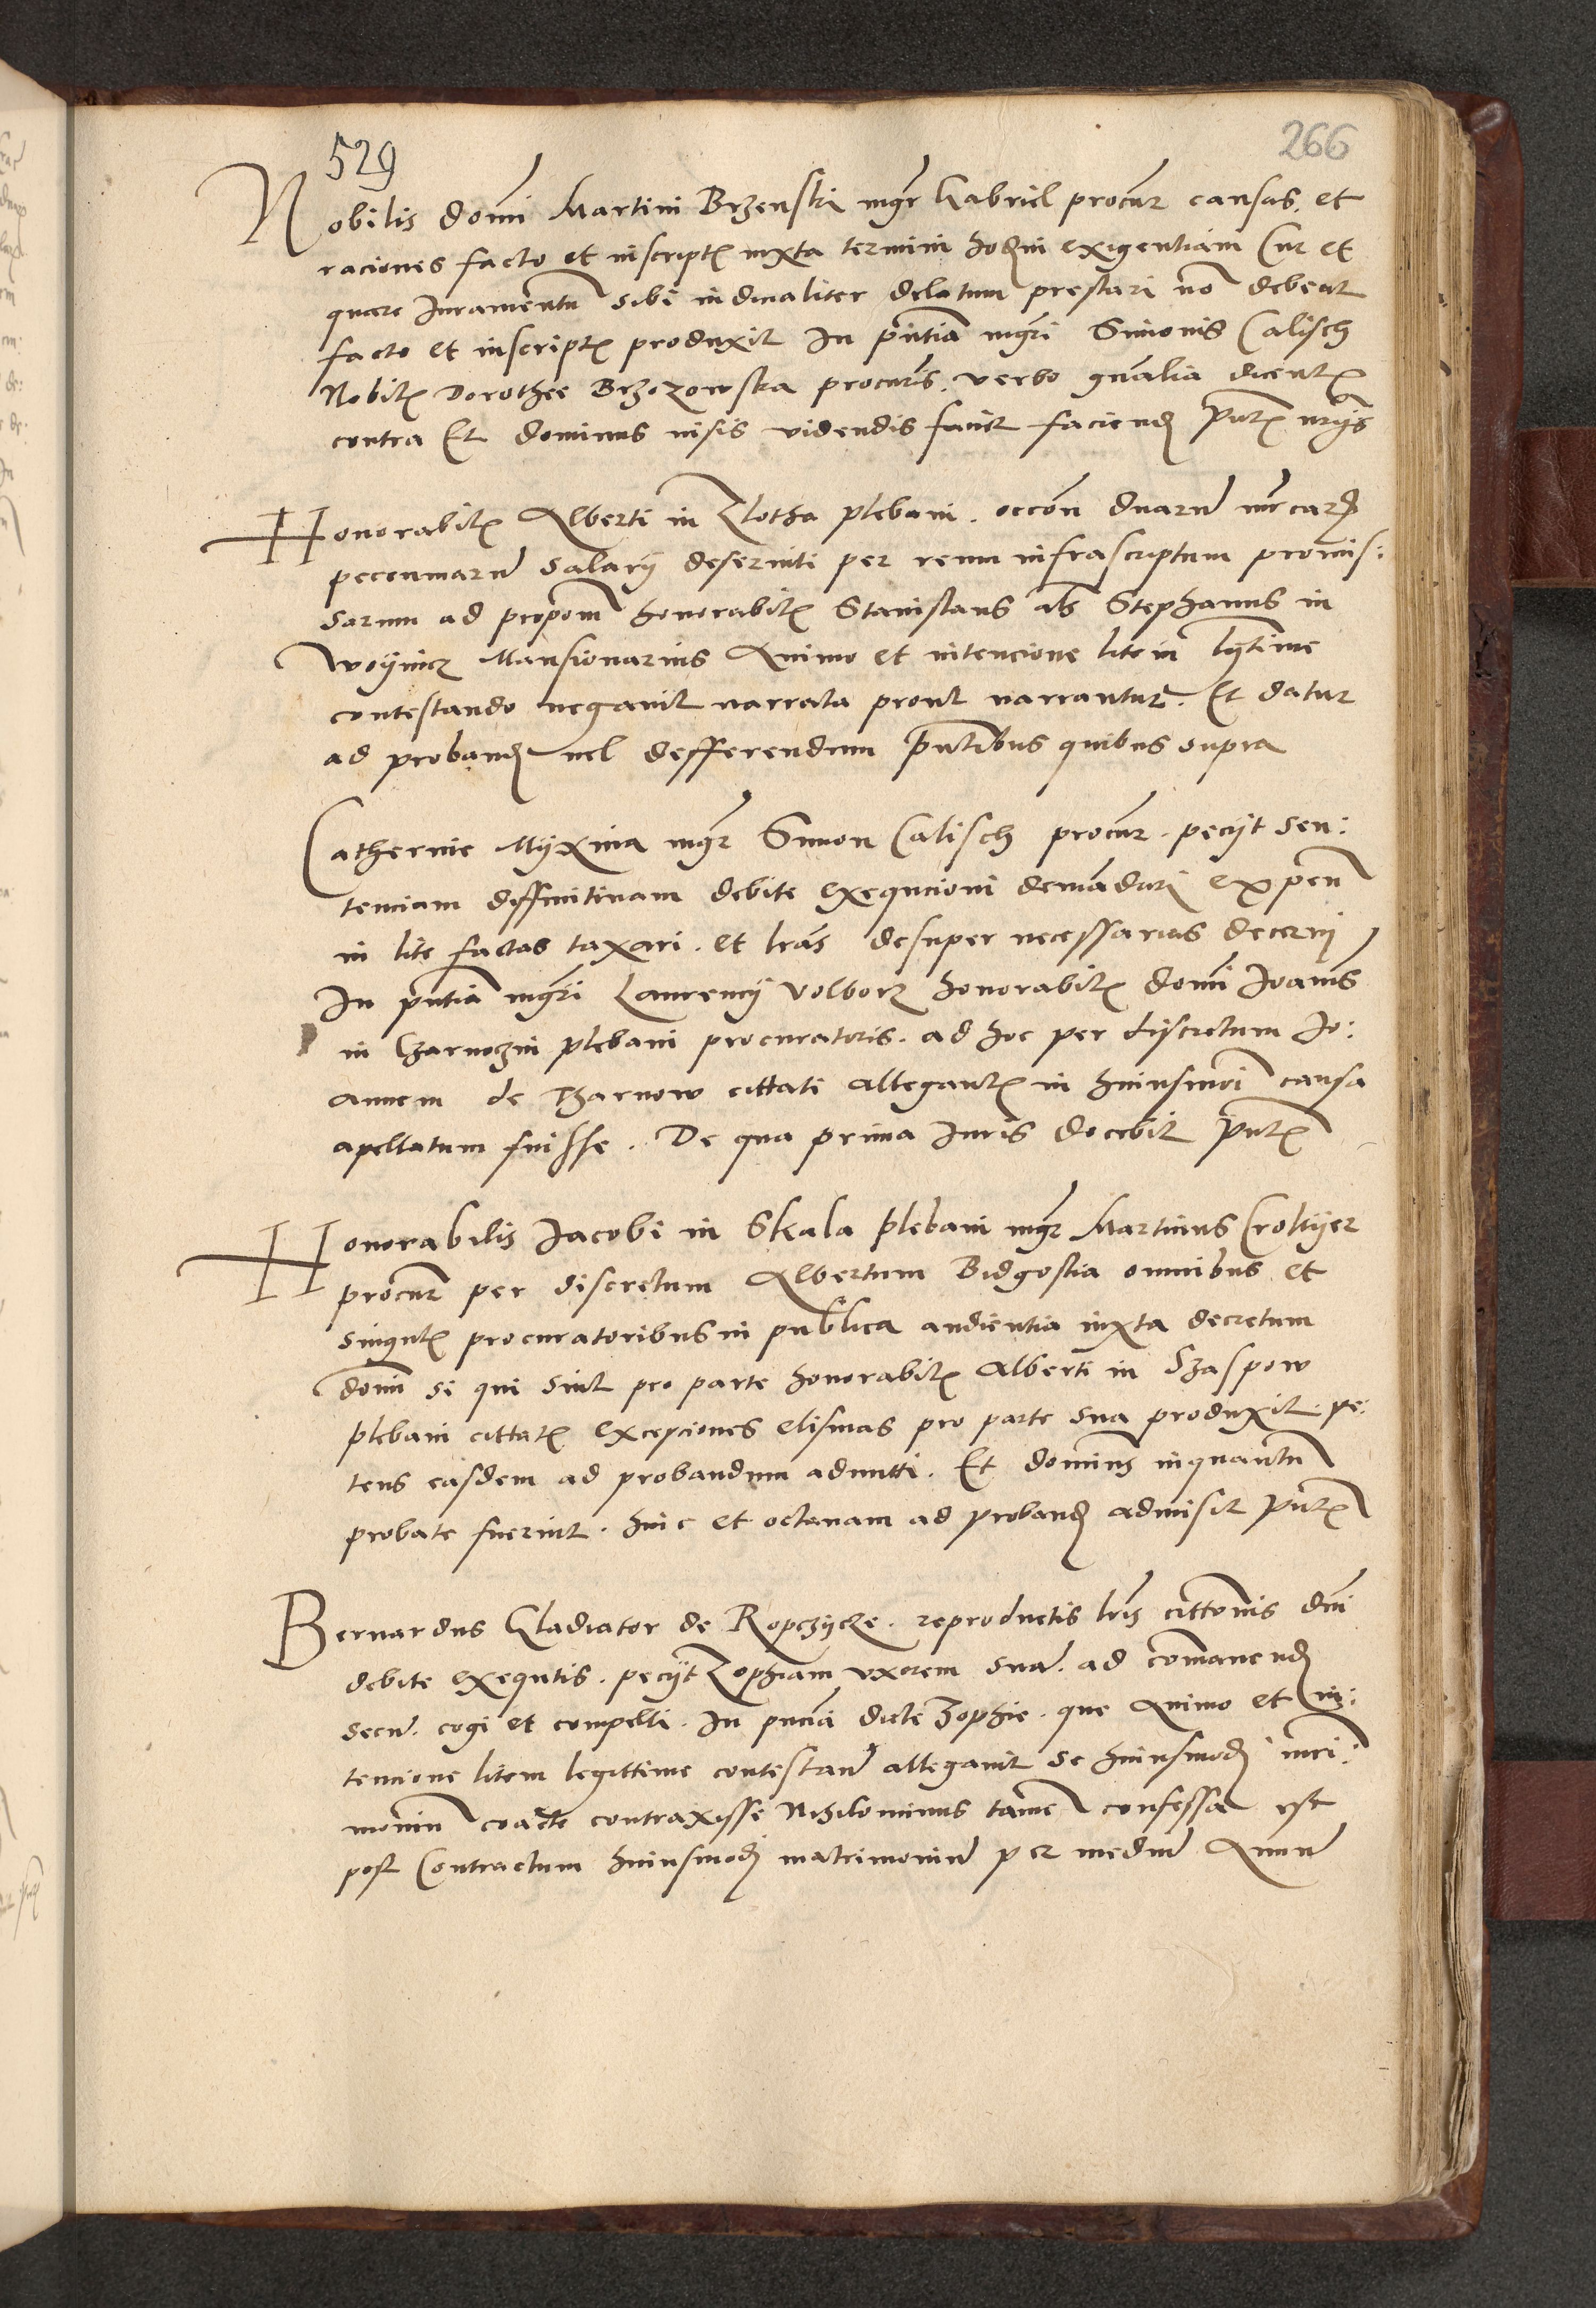 529
266
Nobilis domi Martini Brzenski mgr Gabriel procur causas. et
raciones facto et inscriptis iuxta termini hodierni exigentiam Cur et
quare Iuramentu sibi iudicialiter delatum prestari no debeat
facto et inscriptis produxit In pntia mgri Simonis Calisch
Nobilis Dorothee Brzozowska procuris. verbo gnalia dicentis
contra Et dominus visis videndis faciet faciend pntibus
Honorabilis Alberti in Zlotha plebani. occon duaru mrcaru
peccuniaru salary deserviti per reum infrascriptum promis:
sarum ad propom honorabilis Stanislaus als Stephanus in
Woynicz Mansionarius Animo et intencione litem lgtime
contestando negavit narrata prout narrantur. Et datur
ad proband vel defferendum pntibus quibus supra
Catherine Myxina mgr Simon Calisch procur. pecyt sen:
tenciam diffinitivam debite exequcioni demadari expen
in lite factas taxari. et lras desuper necessarias decerni
In pntia mgri Laurency Volborz honorabilis domi Joanis
in Czarnoczin plebani procuratoris. ad hoc per discretum Jo:
annem de Tharnow cittati allegantis in huiusmoi causa
apellatum fuisse. De qua prima Iuris docebit pntibus
Honorabilis Jacobi in Skala plebani mgr Martinus Crolyer
procur per discretum Albertum Bidgostia omnibus et
singulis procuratoribus in publica audientia iuxta decretum
domi si qui sint pro parte honorabilis Alberti in Szaspow
plebani cittatis excepciones elisivas pro parte sua produxit. pe:
tens easdem ad probandum admitti. Et dominus inquantu
probate fuerint. hinc et octavam ad proband admisit pntibus
Bernardus Gladiator de Ropczycze. reproductis lris cittonis dni
debite exequtis. pecyt Zophiam uxorem sua. ad comanend
secu. cogi et compelli. In pncia dicte Zophie. que Animo et in:
tencione litem legittime contestan allegavit se huiusmodi mri:
moniu coacte contraxisse Nihilominus tame confessa est
post Contractum huiusmodi matrimoniu per mediu Annu